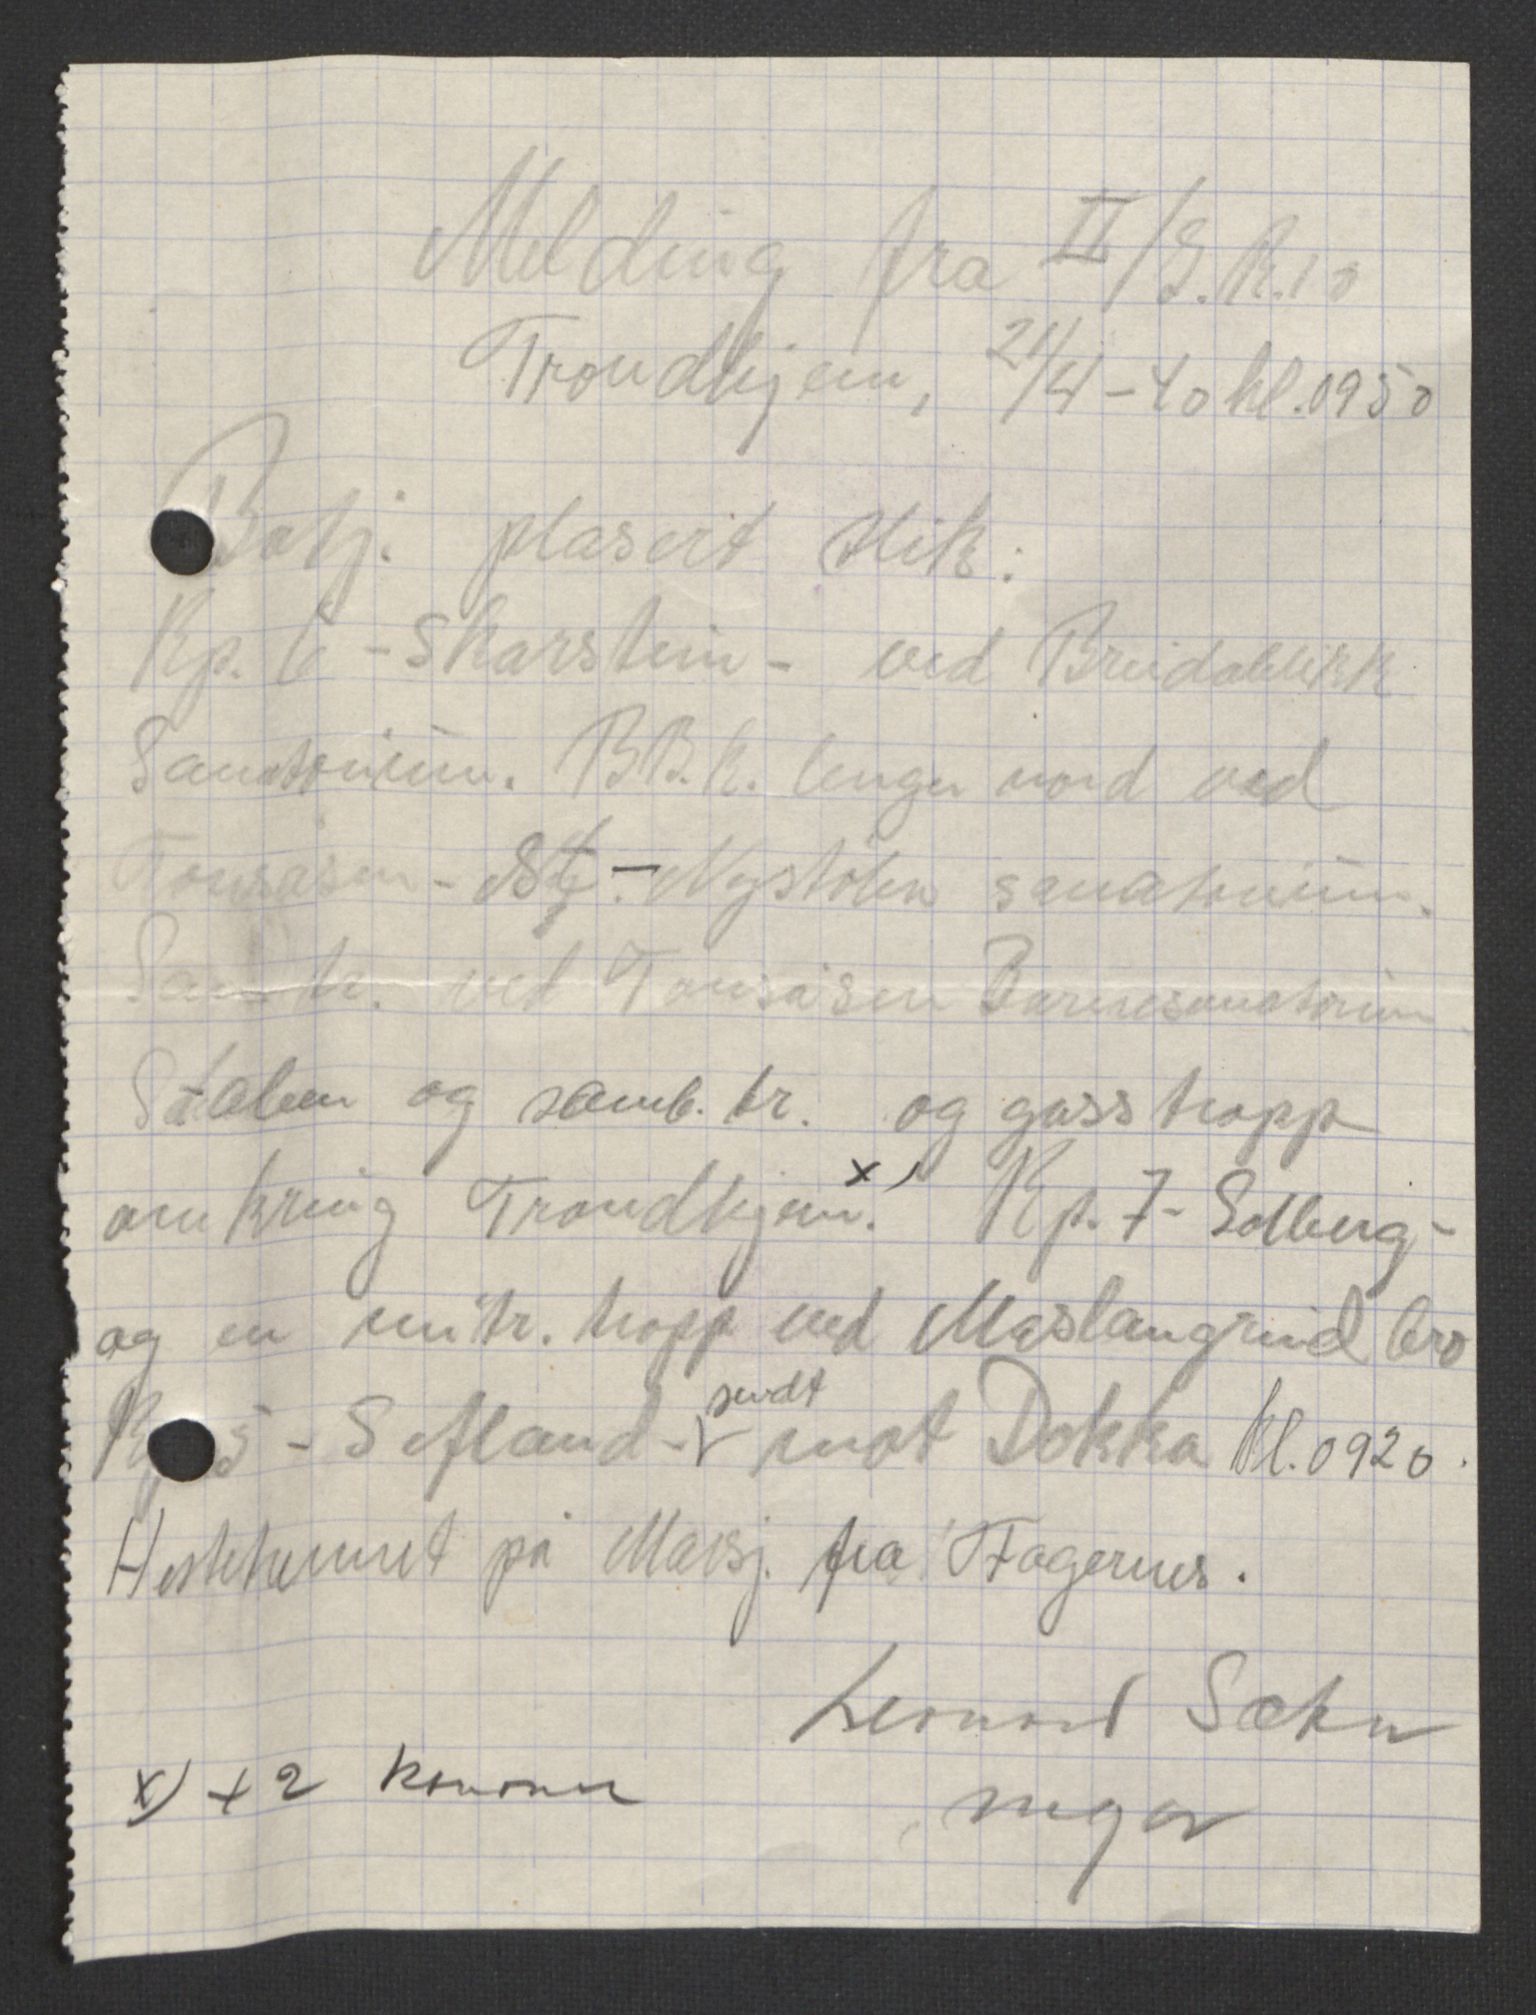 Melding fra II/I.R.10
Trondhjem, 21/4-40 kl. 0950
Batj. plasert slik:
Kp. 6 - Skarstein - ved Breidablikk
Sanatorium. BB.k. lenger nord ved
Tonsåsen - St. - Nystölen sanatorium.
San. tr. ved Tonsåsen Barnesanatorium
Staben og samb. tr. og gasstropp
omkring Trondhjem.x) Kp. 7 - Solberg -
og en mitr. tropp ved Mæslangrud bro
Kp. 5 - Sefland - sendt mot Dokka kl. 0920.
Hestetrenet på Marsj. fra Fagernes.
Leonard Sæhr
major
x) + 2 kanoner